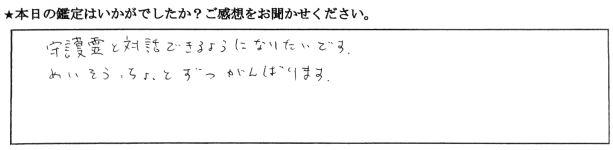 ★本日の鑑定はいかがでしたか？ご感想をお聞かせください。
守護霊と対話できるようになりたいです.
めいそう、ちょっとずつがんばります.